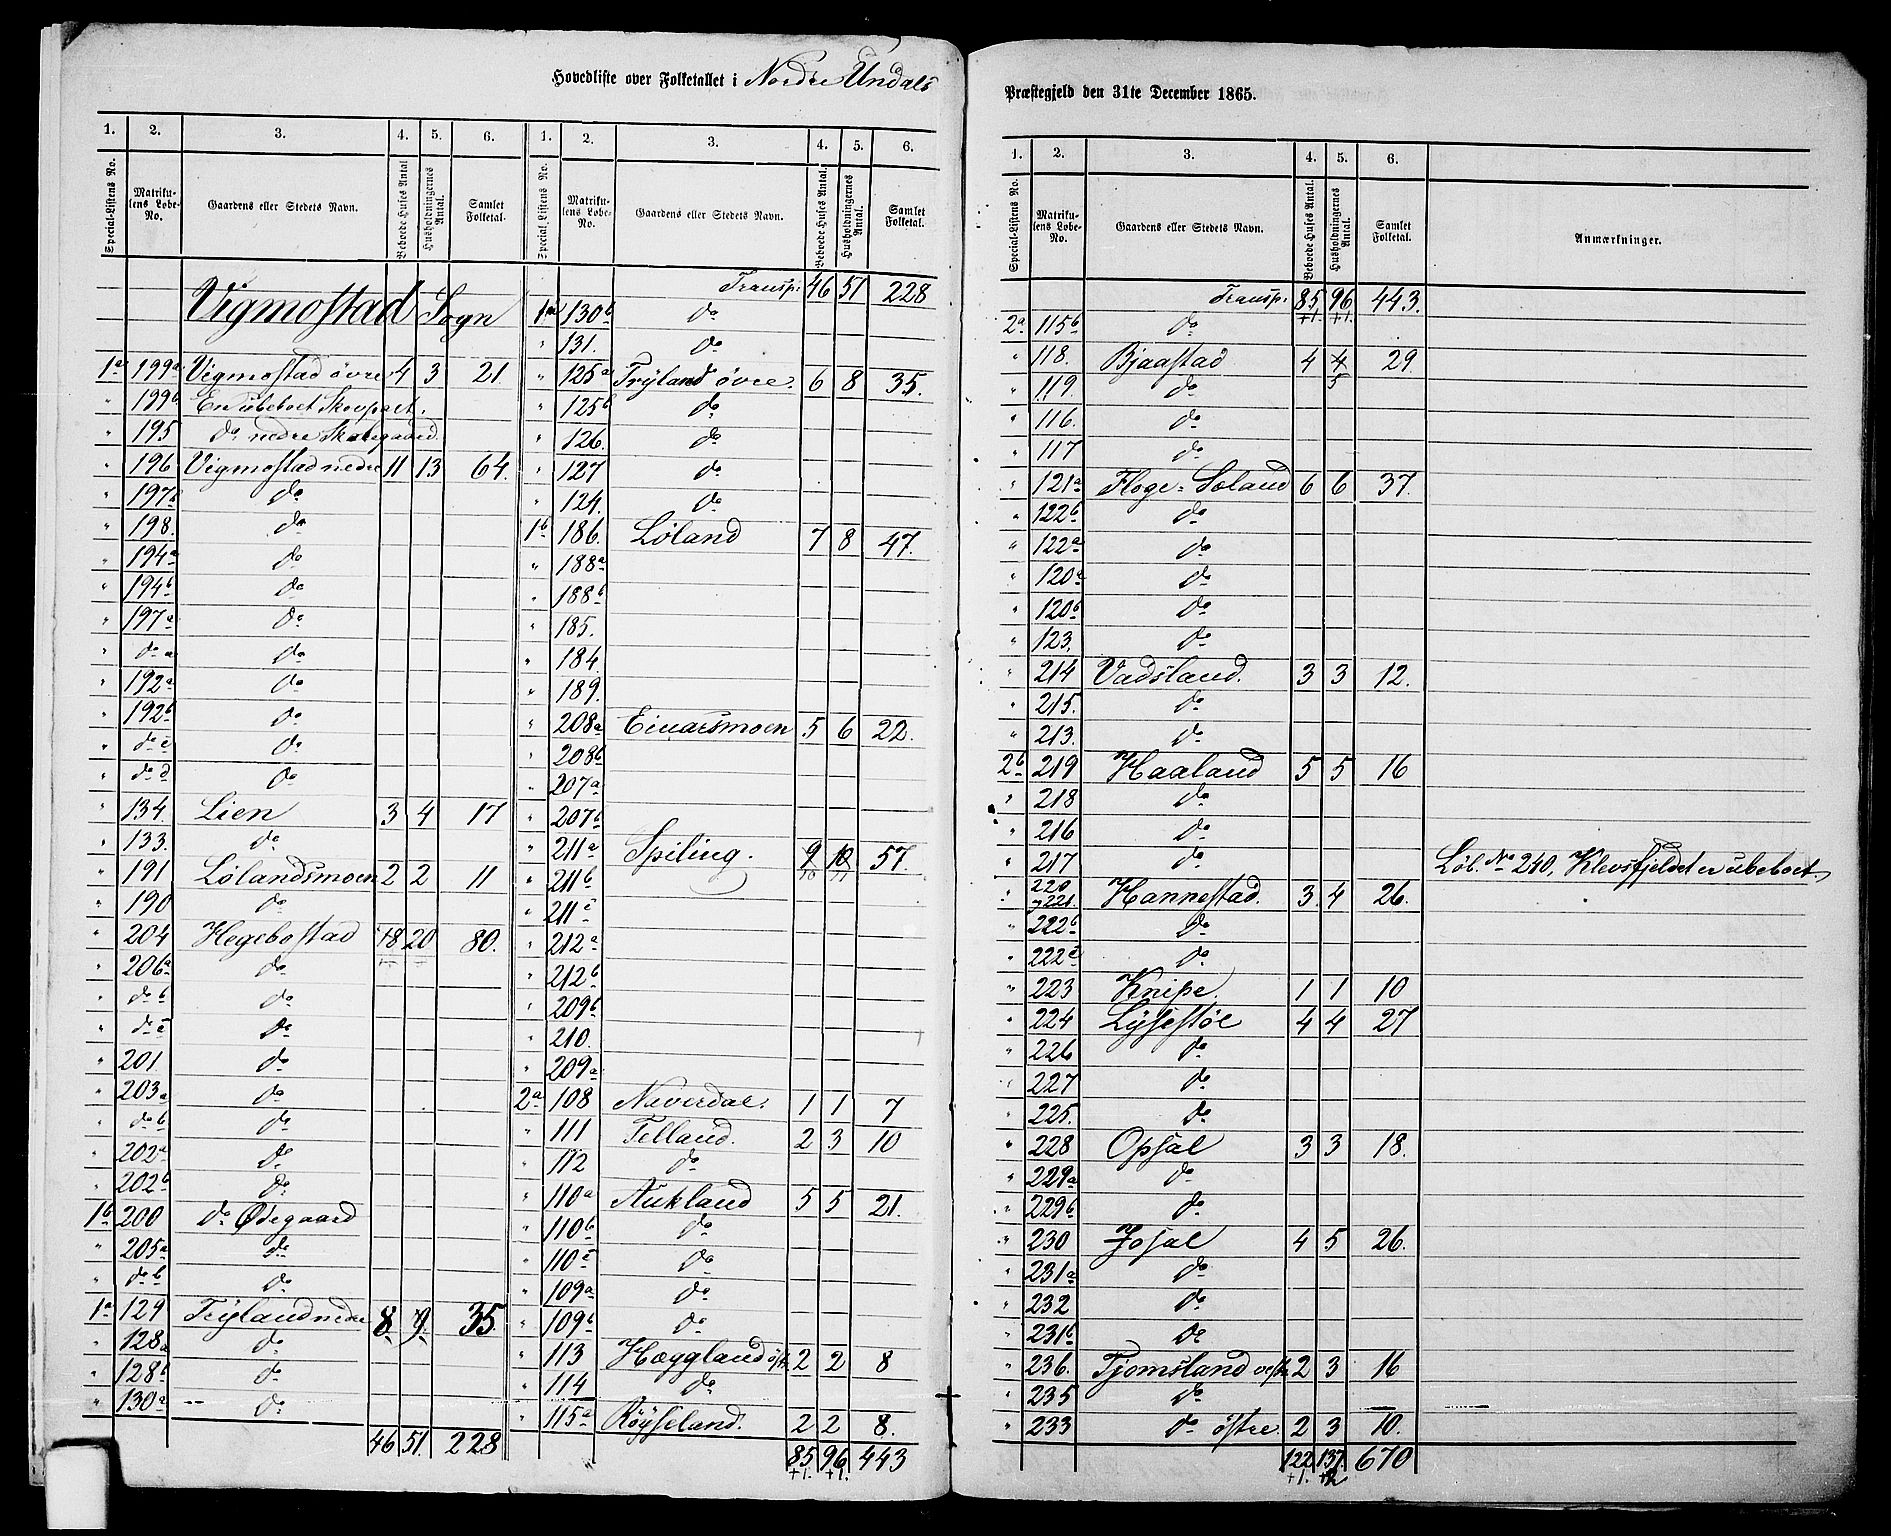 Hovedliste over Folketallet i Nordre Undals
Præstegjeld den 31te December 1865.
1. 2. 3. 4. 5. 6.
Special-Listens No. Matrikulens Løbe-No. Gaardens eller Stedets Navn. Beboede Huses Antal Husholdningernes Antal. Samlet Folketal.
Vigmostad Sogn
1a 199a Vigmostad övre 4 3 21.
" 199b En ubeboet Skovpart.
" 195 do nedre Skolegaard
" 196 Vigmostad nedre 11 13 64.
" 197b do
" 198. do
" 194a do
" 194b do
" 197a do
" do a do
" 192a do
" 192b do
" do c do
" do d do
" 134. Lien 3 4 17
" 133. do
" 191 Lølandsmoen 2 2 11
" 190 do
" 204 Hegebostad 18 20 80.
" 206a do
" do b do
" do c do
" 201 do
" 203a do
" do b do
" 202a do
" 202b do
1b 200 do Ødegaard
" 205a do
" do b do
1a 129 Trÿland nedre 8 9. 35.
" 128a do
" 128b do
" 130a do
46 51. 228
1. 2. 3. 4. 5. 6.
Special-Listens No. Matrikulens Løbe-No. Gaardens eller Stedets Navn. Beboede Huses Antal. Husholdningernes Antal. Samlet Folketal.
Transp: 46 51 228
1a 130b do
" 131. do
" 125a Trÿland övre. 6 8 35.
" 125b do
" 126. do
" 127 do
" 124. do
1b 186. Løland 7 8 47.
" 188a
" 188b
" 185.
" 184.
" 189.
" 208a Einarsmoen 5 6 22.
" 208b
" 207a
" 207b
" 211a Spiling. 9 10 57.
" 211b
" 211c
" 212a
" 212b
" 209b
" 210.
" 209a
2a 108 Naverdal. 1 1 7
" 111 Telland. 2 3 10
" 112 do
" 110a Aukland 5 5 21.
" 110b do
" 110c do
" 109a do
" 109b do
" 113 Hæggland östr 2 2 8
" 114 do
" 115a Röÿseland. 2 2 8.
85 96 443
+1. +1.
1. 2. 3. 4. 5. 6.
Special-Listens No. Matrikulens Løbe-No. Gaardens eller Stedets Navn. Beboede Huses Antal. Husholdningernes Antal. Samlet Folketal. Anmærkninger.
Transp: 85 96 443.
+1. +1.
2a 115b do
" 118. Bjaastad 4 4 29
5
" 119. do
" 116. do
" 117 do
" 121a Floge-Søland 6 6 37.
" 122b do
" 122a do
" 120a do
" 120b do
" 123. do
" 214 Vadsland. 3 3 12.
" 215. do
" 213. do
2b 219 Haaland 5 5 16
" 218 do
" 216 do
" 217 do Løb. No 240, Klevsfjeldet er ubeboet.
" 220 og 221. Hannestad. 3. 4 26.
" 222b do
" 222c do
" 223 Knipe. 1 1 10
" 224 Lÿsestøl 4 4 27
" 226 do
" 227 do
" 225. do
" 228 Opsal 3 3 18.
" 229a do
" 229b do
" 230 Josal 4 5 26.
" 231a do
" 232 do
" 231b do
" 236. Tjomsland vestr 2 3 16
" 235 do
" 233 do östre. 2 3 10.
122 137. 670
+1. +2